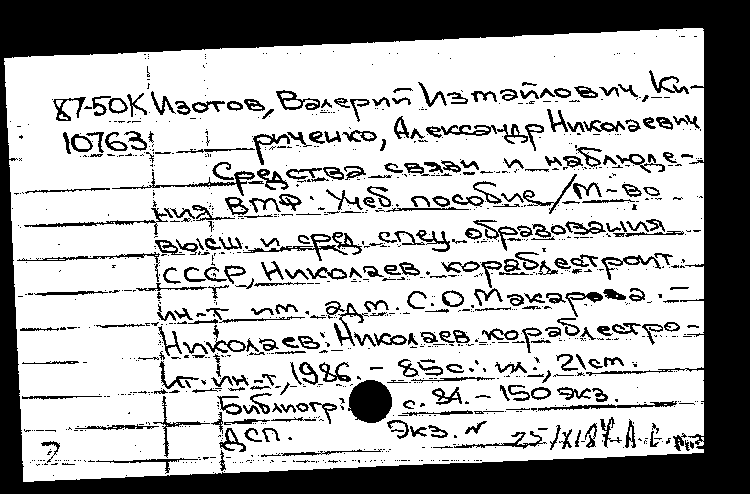 87-50К Изотов, Валерий Измайлович, Ки-
10763 риченко, Александр Николаевич
Средства связи и наблюде-
ния ВМФ: Учеб. пособие / М-во
высш. и сред. спец. образования
СССР, Николаев. кораблестроит.
ин-т им. адм. С.О. Макарова. –
Николаев: Николаев. кораблестро-
ит. ин-т, 1986. – 85 с.: ил.; 21 см.
Библиогр.: с. 84. – 150 экз.
ДСП. Экз. N 25/IX187